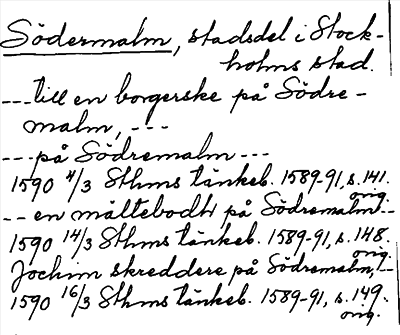 Södermalm, stadsdel i Stock-
holms stad.
---till en borgerske på Södre-
malm, ---
---på Södremalm---
1590 4/3 Sthms tänkeb. 1589-91, s. 141.
orig.
-- en måltebodh på Södremalm--
1590 14/3 Sthms tänkeb. 1589-91, s. 148.
orig.
Jochim skreddere på Södremalm, --
1590 16/3 Sthms tänkeb. 1589-91, s. 149.
orig.